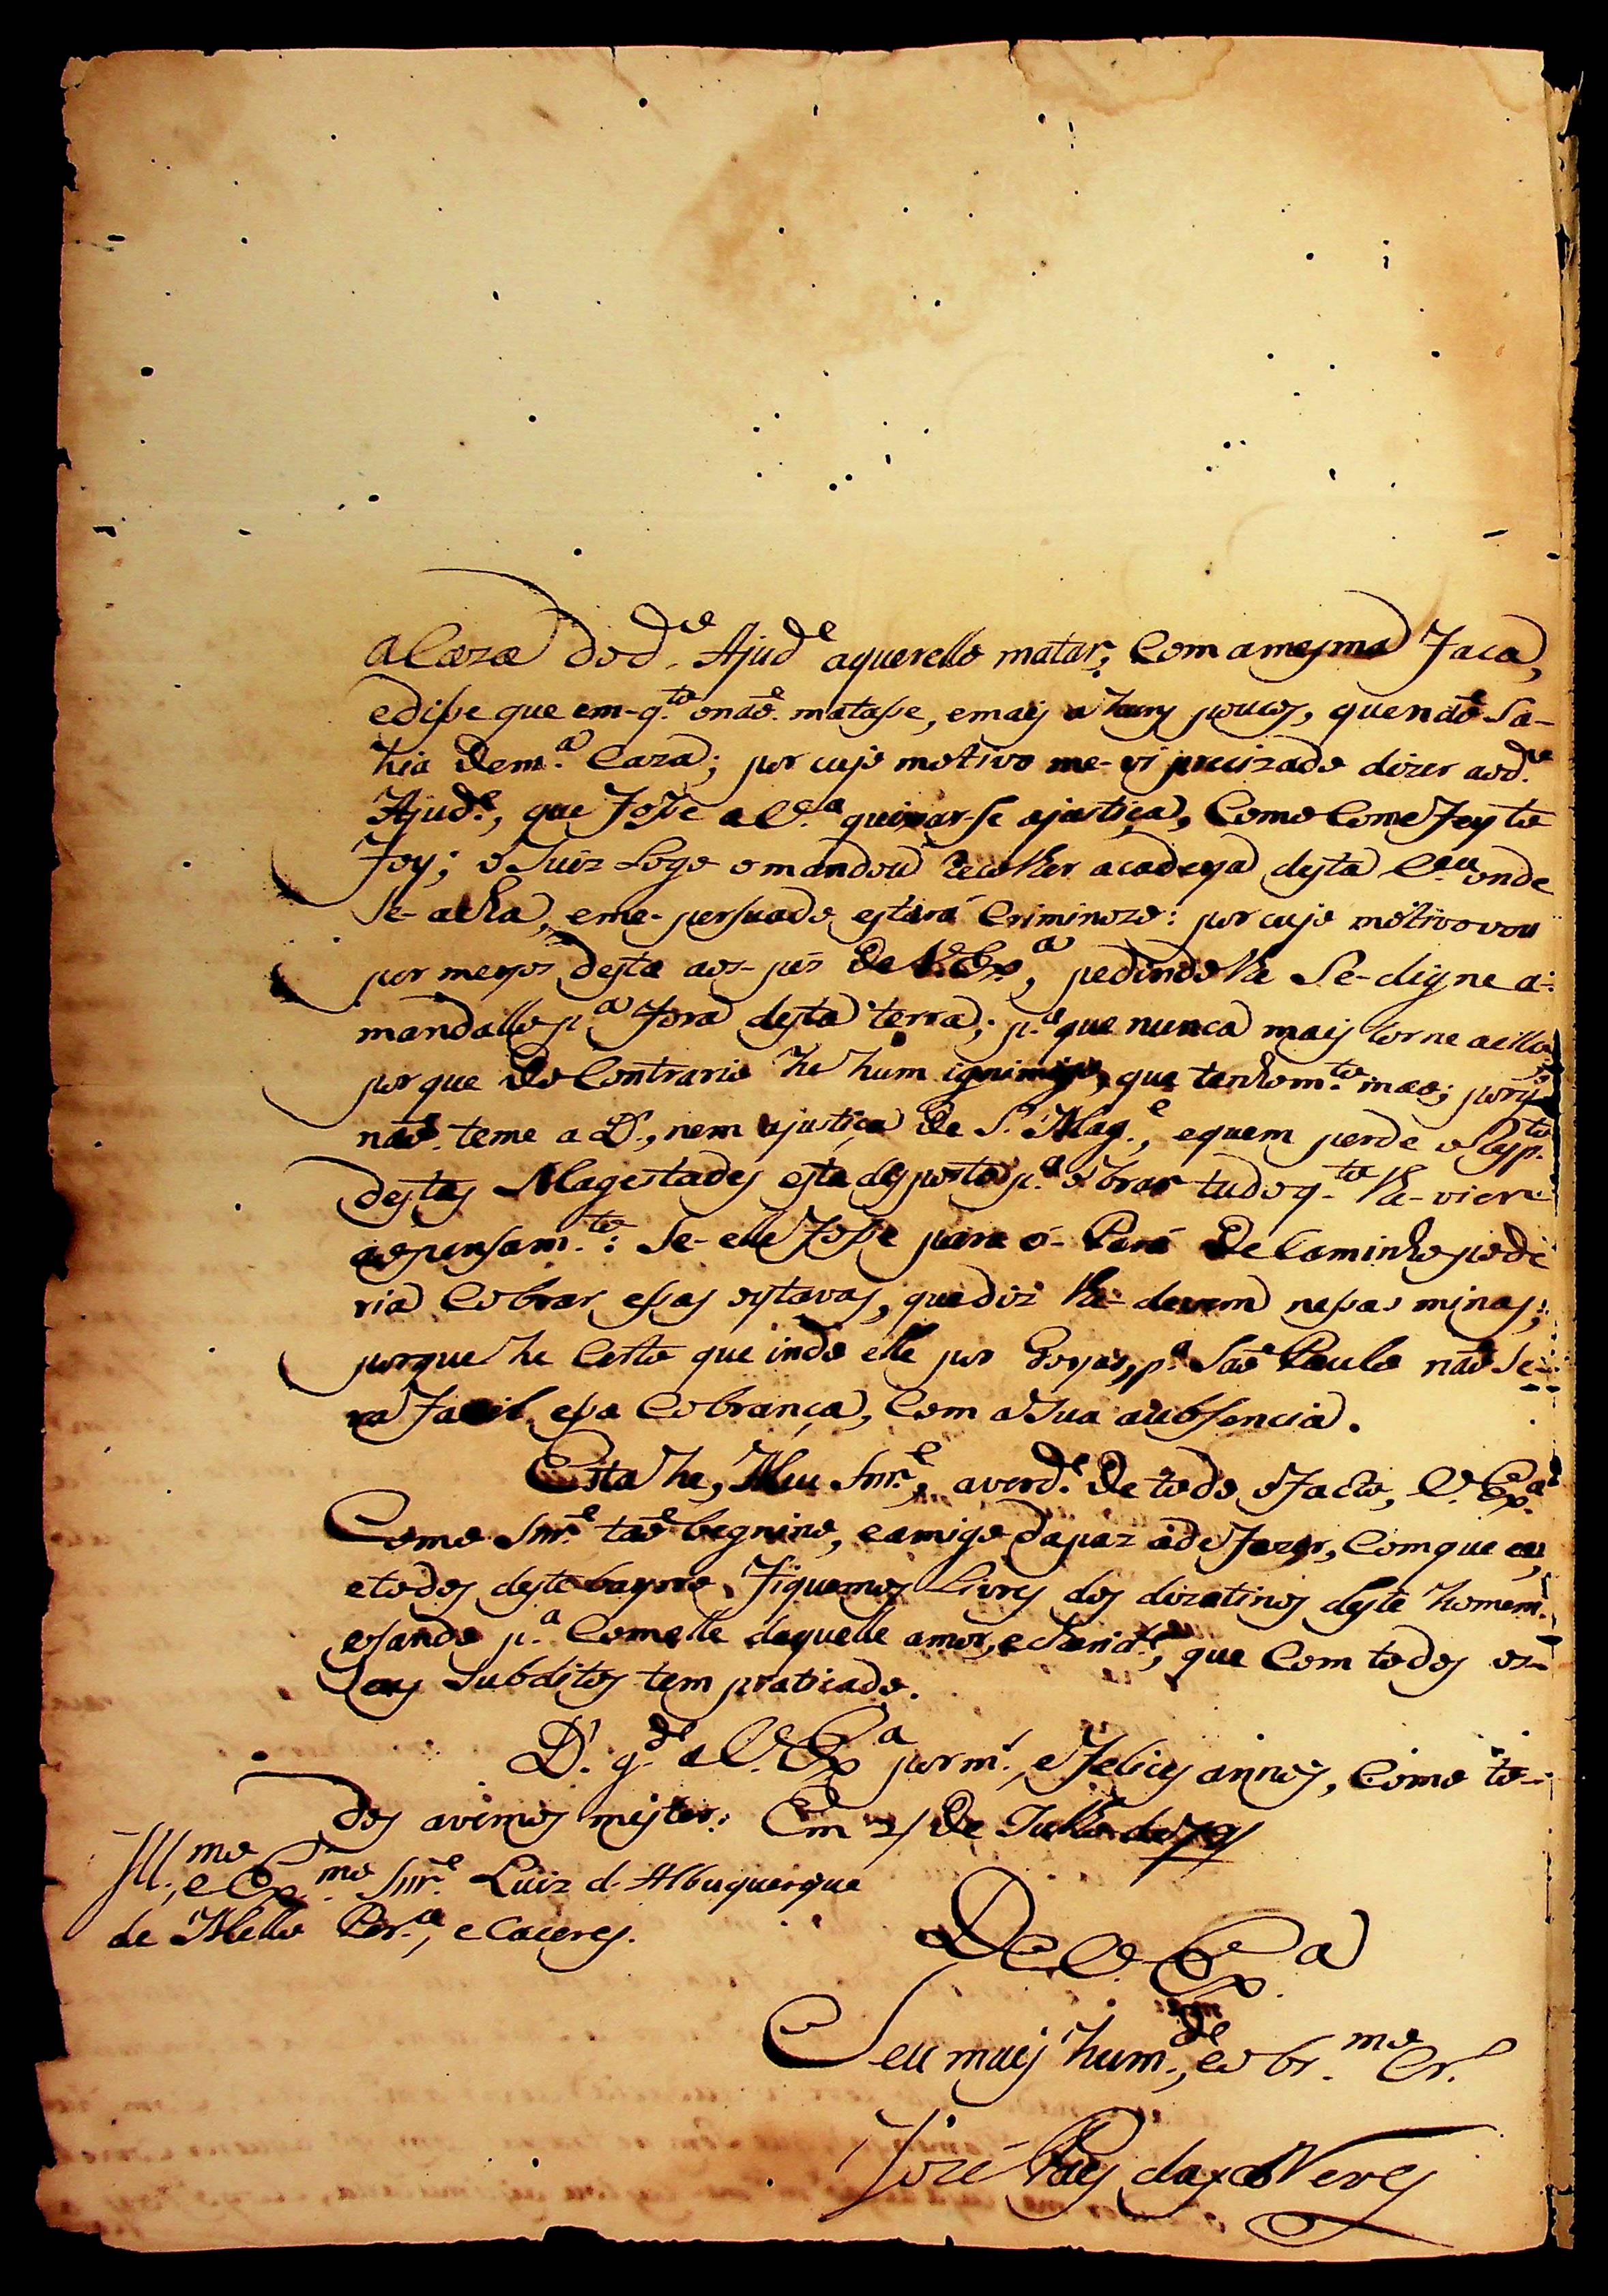 a Caza do d.e Ajud.e aquerello matar, Com amesma Faca,
edisse que em-q.to onaõ matasse, emais a huns poucos, quenaõ Sa-
hia dem.a Caza; por cujo motivo me-vi precizado dizer aod.e
Ajud.e, que Fosse a V.a queixar-se ajustiça, Como Come Feyto
Foy; o Juiz Logo omandou recolher acadeya desta V.a onde
Se-acha, eme-persuado estará Criminozo: por cujo motivo vou
por meyos desta aos-pes de V. Ex.a, pedindolhe Se-digne a-
mandallo p.a Fora desta terra; p.a que nunca mais torne aella,
porque do Contrario he hum que tenho m.to mao;
naõ teme a D.s, nem ajustiça de S. Mag.e, equem perde o Resp.to
destas Magestades esta desposto p.a obrar tudo q.to lhe-vier
aopensam.to: Se-elle Fosse para o-Pará de Caminho pode
ria Cobrar essas oytavas, quediz lhe-devem nessas minas;
porque he Certo que indo elle por Goyas, p.a Saõ Paulo naõ Se-
ra Facil essa Cobrança, Com a Sua aubsencia.
Esta he, Meu Snr.e, averd.e de todo oFacto, V. Ex.a
Como Snr.e taõ begnino, eamigo dapaz ade Fazer, Comque eu,
etodos deste bayrro Fiquemos Livres dos dizatinos deste homem
uzando p.a Comelle daquelle amor, echarid.e, que Com todos os-
Seus Subditos tem praticado.
D.s g.de a V. Ex.a por m.s, eFelices annos, Como to-
dos avemos mister: Em 21 de Julho de 79
Ill.mo, e Ex.mo Snr.e Luiz d'Albuquerque
de Mello Per.a, e Caceres.
De V. Ex.a
Seu mais hum.de, eobr.mo Cr.
José Paes das Neves